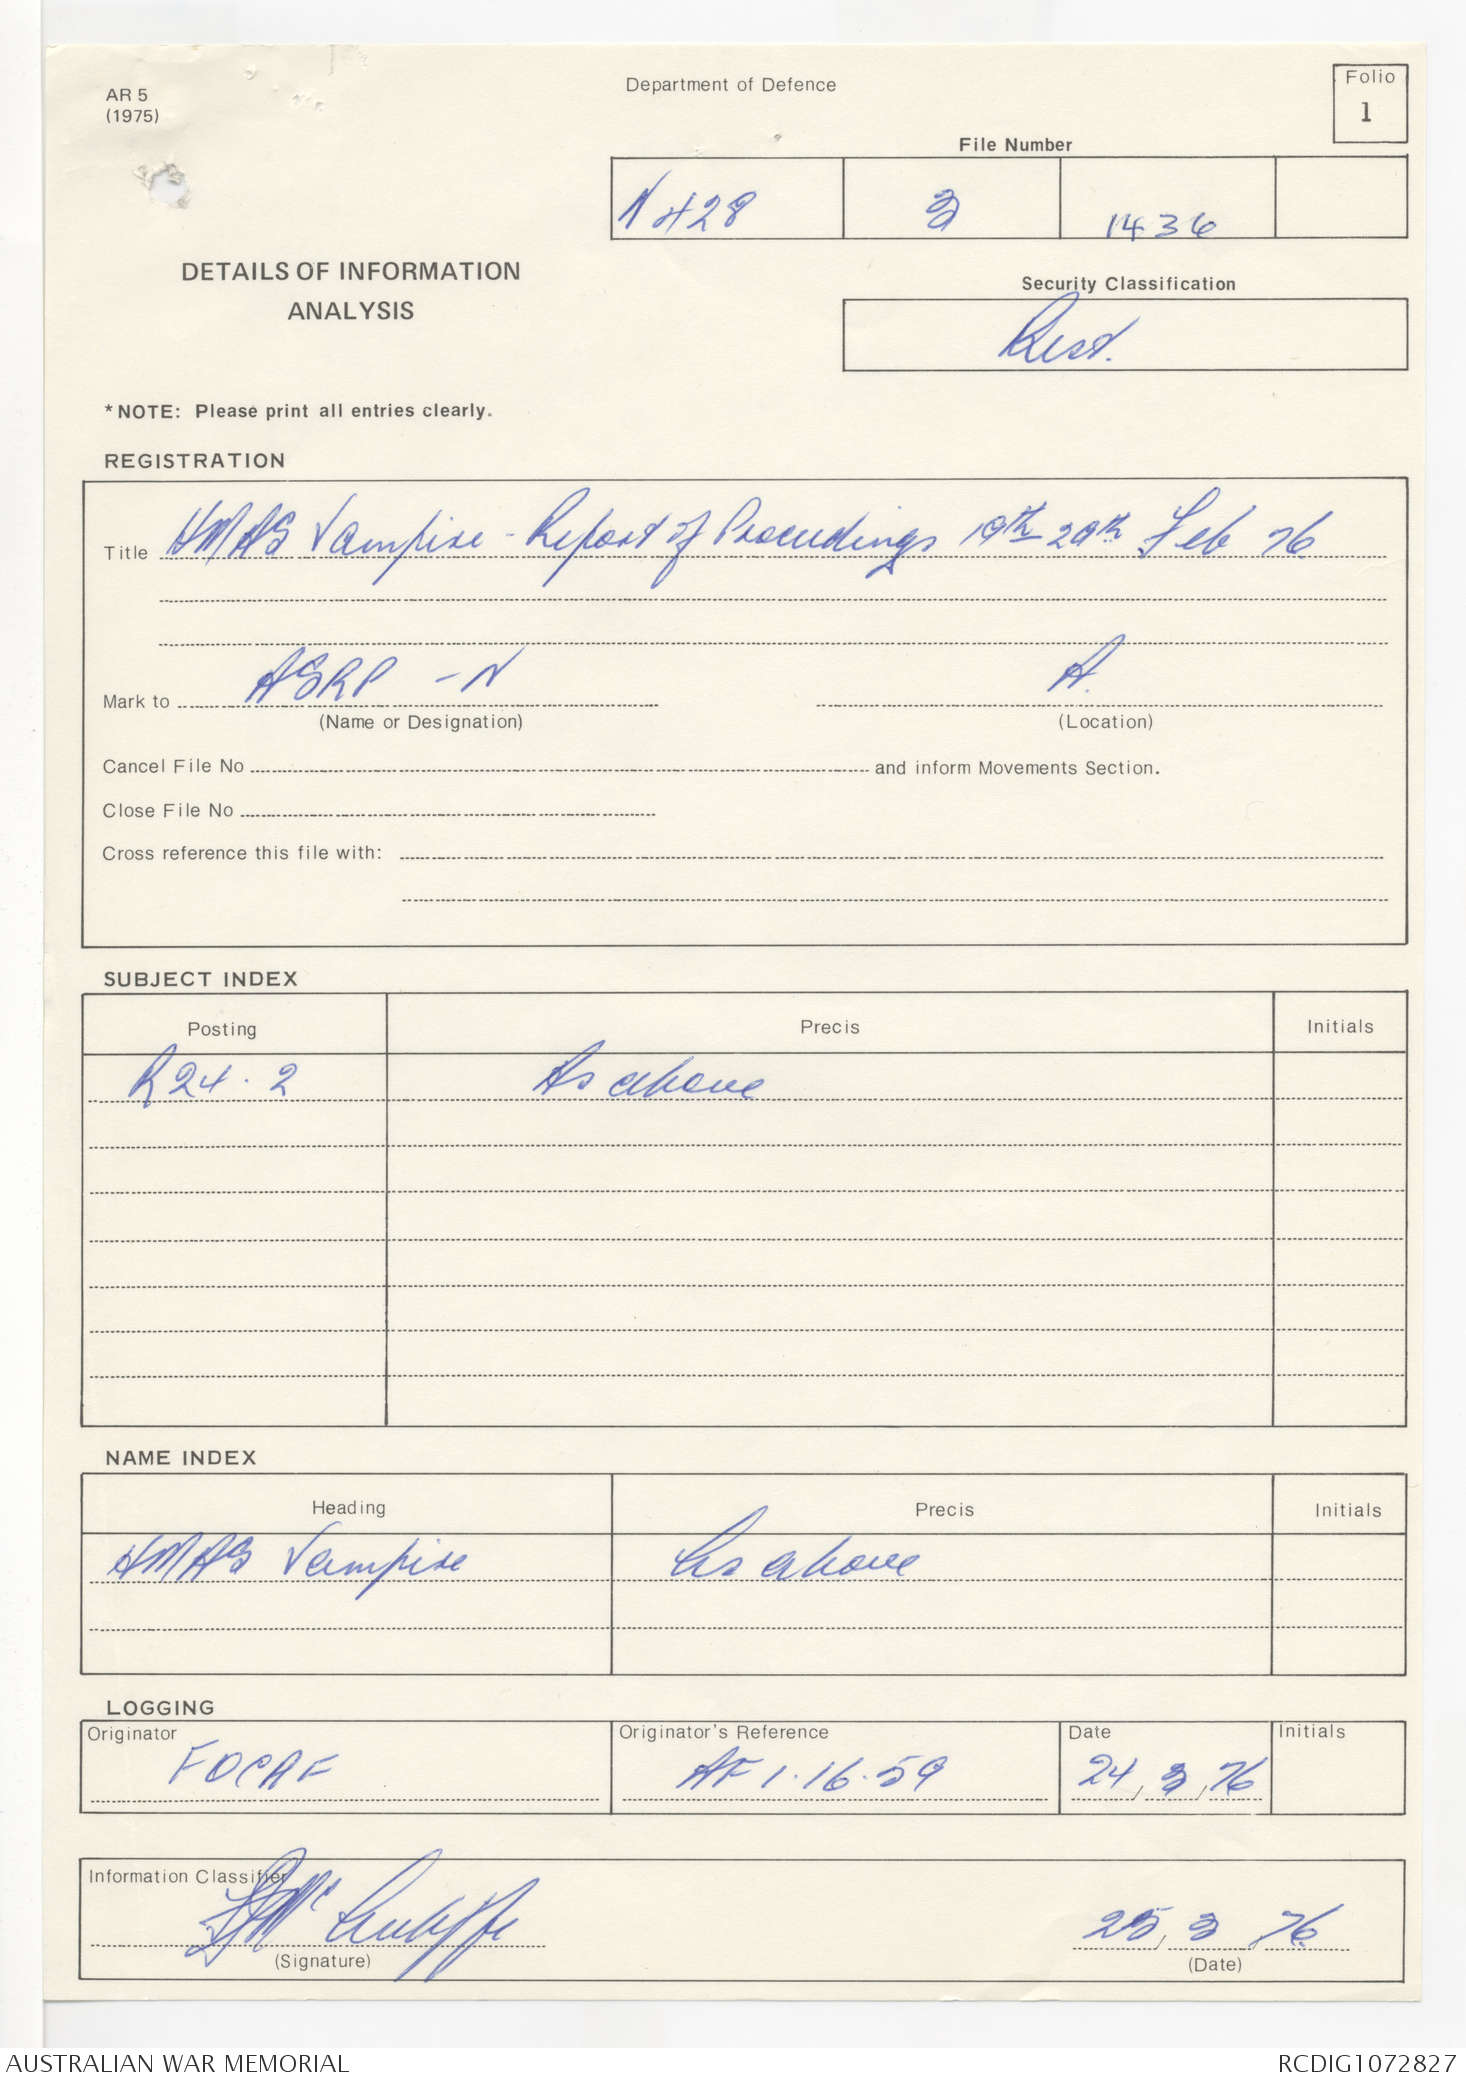 AR 5
(1975)
Department of Defence
Folio
1
File Number
N 428 3 1436
DETAILS OF INFORMATION
ANALYSIS
Security Classification
Rest.
*NOTE: Please print all entries clearly.
REGISTRATION
Title HMAS Vampire - Report of Proceedings 19th 29th Feb 76
Mark to ASRP - N A.
(Name or Designation) (Location)
Cancel File No and inform Movements Section.
Close File No
Cross reference this file with:
SUBJECT INDEX
Posting Precis Initials
R24.2 As above
NAME INDEX
Heading Precis Initials
HMAS Vampire As above
LOGGING
Originator Originator's Reference Date Initials
FOCAF AF 1.16.59 24, 3, 76
Information Classifier
25, 3, 76
(Signature) (Date)
AUSTRALIAN WAR MEMORIAL RCDIG1072827